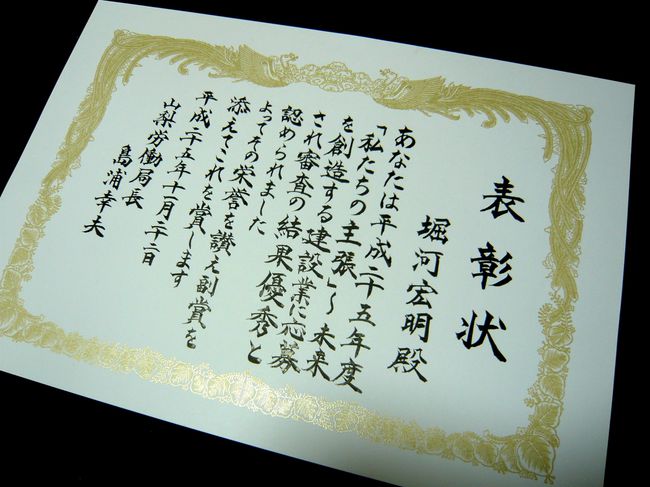 表彰状
堀河宏明殿
あなたは平成二十五年度
「私たちの主張」〜未来
を創造する建設業に応募
され審査の結果優秀と
認められました
よってその栄誉を讃え副賞を
添えてこれを賞します
平成二十五年十一月二十二日
山梨労働局長
島浦幸夫